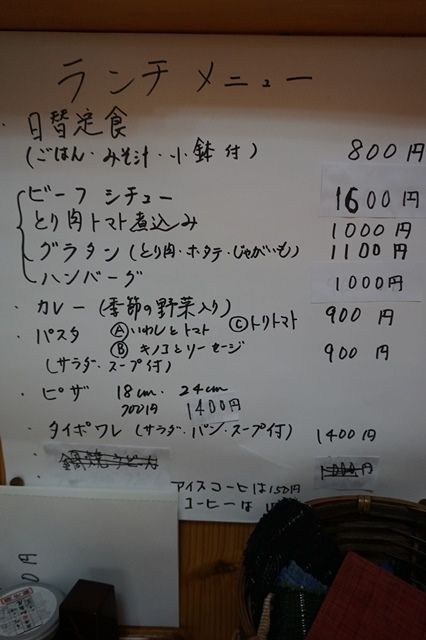 ランチメニュー
・日替定食
(ごはん・みそ汁・小鉢付) 800円
ビーフシチュー 1600円
とり肉トマト煮込み 1000円
グラタン(とり肉・ホタテ・じゃがいも) 1100円
ハンバーグ 1000円
・カレー(季節の野菜入り) 900円
・パスタ Ⓐいわしとトマト Ⓒトリトマト
Ⓑキノコとソーセージ 900円
(サラダ・スープ付)
・ピザ 18cm・24cm
700円 1400円
・タイポワレ(サラダ・パン・スープ付) 1400円
・鍋焼うどん 1000円
アイスコーヒーは150円
コーヒーは
0円